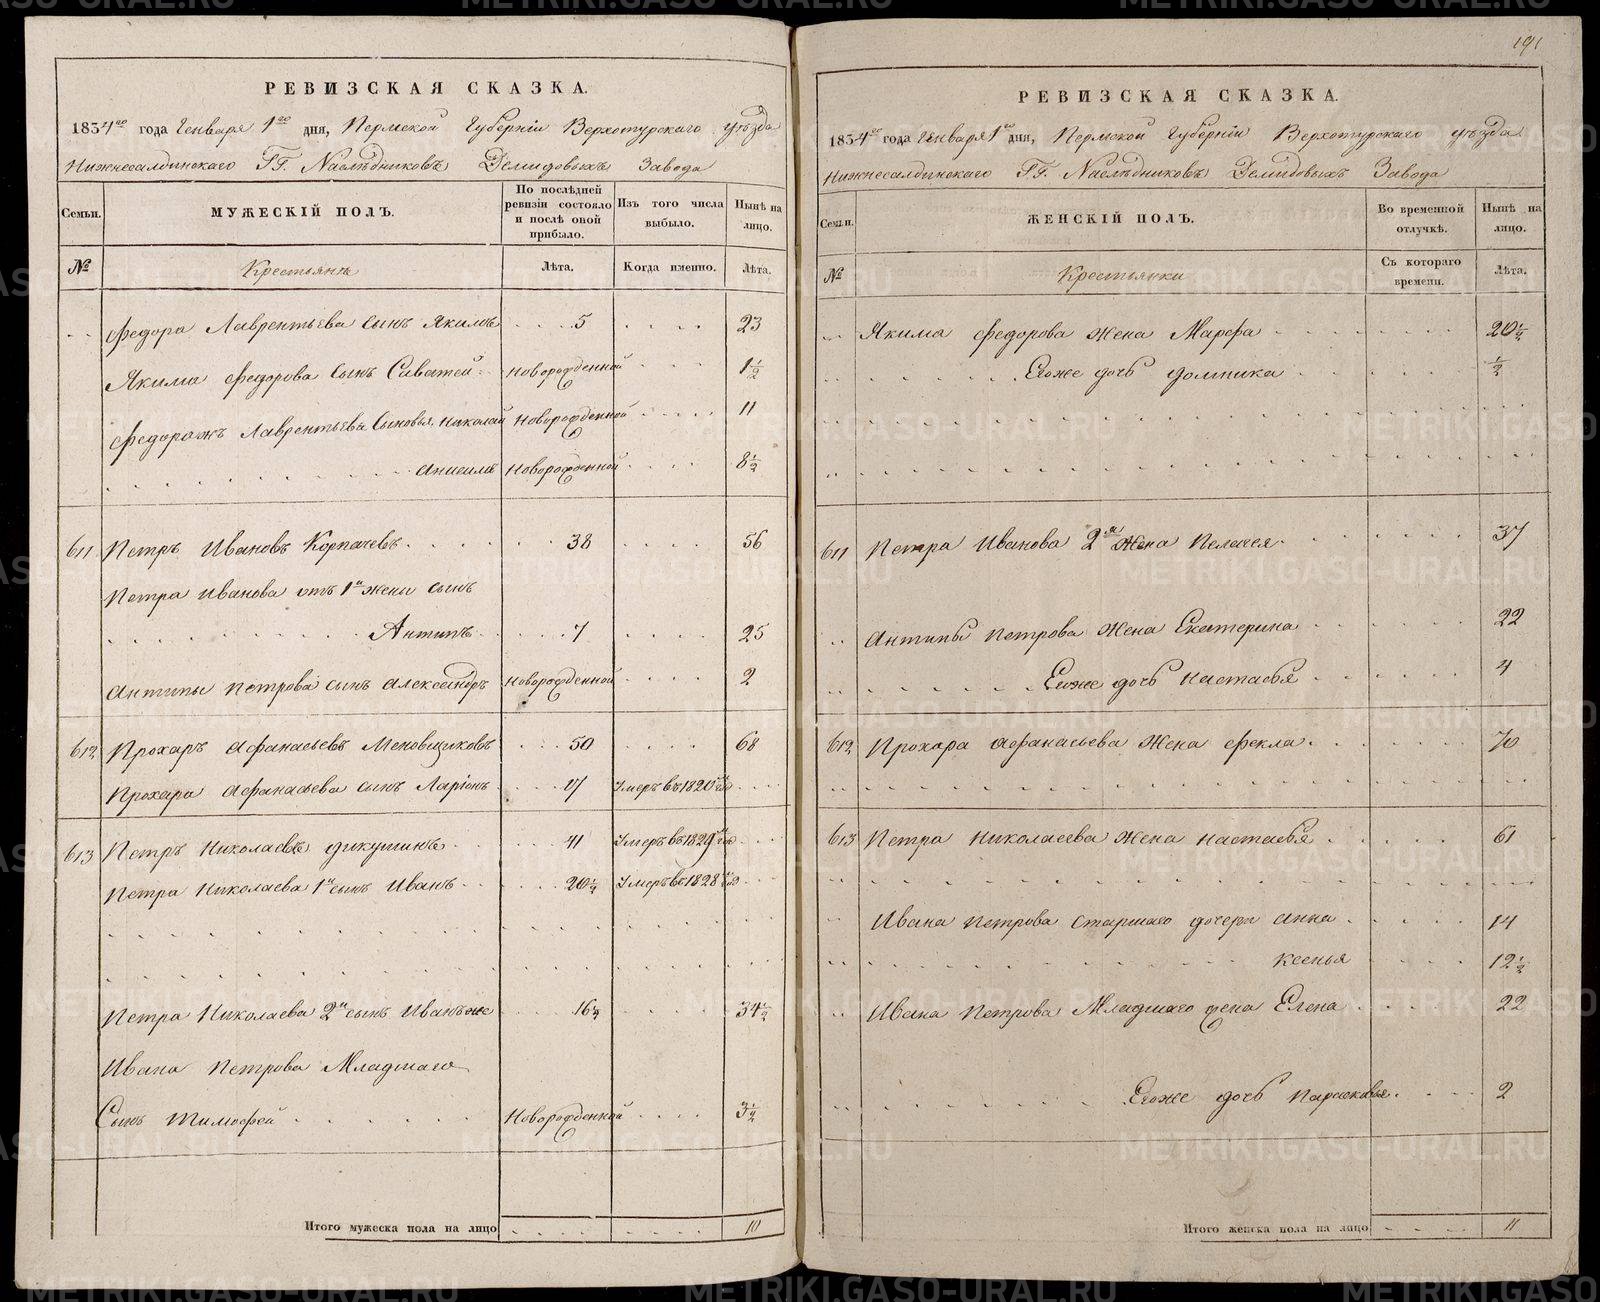 РЕВИЗСКАЯ СКАЗКА.
1834го года Генваря 1го дня, Пермской Губерніи Верхотурскаго уѣзда
Нижнесалдинскаго ГГ. Наслѣдниковъ Демидовыхъ Завода
Семьи. МУЖЕСКІЙ ПОЛЪ. По послѣдней ревизіи состояло и послѣ оной прибыло. Изъ того числа выбыло. Нынѣ на лицо.
№ Крестьяне Лѣта. Когда именно. Лѣта.
Федора Лаврентьева сынъ Якимъ 5 23
Якима Федорова сынъ Саватей Новорожденной 1 1/2
Федора жъ Лаврентьева Сыновья Николай Новорожденной 11
Анисимъ Новорожденной 8 1/2
611 Петръ Ивановъ Корпачевъ 38 56
Петра Иванова отъ 1й жены сынъ
Антипъ 7 25
Антипы Петрова сынъ Александръ Новорожденной 2
612 Прохаръ Афанасьевъ Меновщиковъ 50 68
Прохара Афанасьева сынъ Ларіонъ 17 Умеръ въ 1820 мъ году
613 Петръ Николаевъ Дикушинъ 41 Умеръ въ 1829 мъ году
Петра Николаева 1й сынъ Иванъ 20 1/2 Умеръ въ 1828 мъ году
Петра Николаева 2й сынъ Иванъ же 16 1/2 34 1/2
Ивана Петрова Младшаго
Сынъ Тимофей Новорожденной 3 1/2
Итого мужеска пола на лицо 10
191
РЕВИЗСКАЯ СКАЗКА.
1834го года Генваря 1го дня, Пермской Губерніи Верхотурскаго уѣзда
Нижнесалдинскаго ГГ. Наслѣдниковъ Демидовыхъ Завода
Семьи. ЖЕНСКІЙ ПОЛЪ. Во временной отлучкѣ. Нынѣ на лицо.
№ Крестьянки Съ котораго времени. Лѣта.
Якима Федорова жена Марфа 20 1/2
Егоже дочь Домника 1/2
611 Петра Иванова 2я жена Пелагея 37
Антипы Петрова жена Екатерина 22
Егоже дочь Настасья 4
612 Прохара Афанасьева жена Фекла 70
613 Петра Николаева жена Настасья 61
Ивана Петрова Старшаго дочери Анна 14
Ксенья 12 1/2
Ивана Петрова Младшаго жена Елена 22
Егоже дочь Парасковья 2
Итого женска пола на лицо 11
METRIKI.GASO-URAL.RU